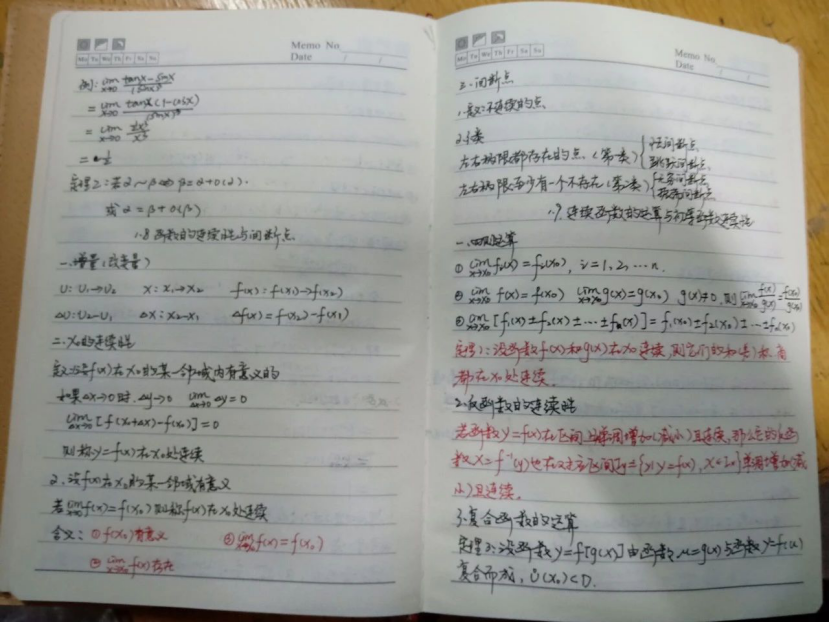 Memo No
Mo Tu We Th Fr Sa Su
Date / /
例: lim x→0 (tanx-sinx)/(sinx)³
= lim x→0 tanx(1-cosx)/(sinx)³
= lim x→0 ½x³/x³
= ½
定理2: 若α~β ⇔ β=α+o(α).
或 α=β+o(β)
1.8 函数的连续性与间断点
一.增量(改变量)
U: U₁→U₂ X: x₁→x₂ f(x): f(x₁)→f(x₂)
ΔU: U₂-U₁ ΔX: x₂-x₁ Δf(x)=f(x₂)-f(x₁)
二.X₀的连续性
定义1:若f(x)在X₀的某一邻域内有意义的
如果Δx→0时.Δy→0 lim Δx→0 Δy=0
lim Δx→0 [f(x₀+Δx)-f(x₀)]=0
则称y=f(x)在X₀处连续
2.设f(x)在X₀的某一邻域有意义
若lim x→x₀ f(x)=f(x₀)则称f(x)在X₀处连续
含义: ①f(x₀)有意义 ③lim x→x₀ f(x)=f(x₀)
②lim x→x₀ f(x)存在
Memo No
Mo Tu We Th Fr Sa Su
Date / /
三.间断点
1.定义:不连续的点
2.分类
左右极限都存在的点.(第一类){可去间断点 跳跃间断点
左右极限至少有一个不存在(第二类){无穷间断点 振荡间断点
1.9.连续函数的运算与初等函数连续性
一.四则运算
① lim x→x₀ fᵢ(x)=fᵢ(x₀), i=1,2,…n.
② lim x→x₀ f(x)=f(x₀) lim x→x₀ g(x)=g(x₀) g(x)≠0,则 lim x→x₀ f(x)/g(x)=f(x₀)/g(x₀)
③ lim x→x₀ [f₁(x)±f₂(x)±…±fₙ(x)]=f₁(x₀)±f₂(x₀)±…±fₙ(x₀)
定理1:设函数f(x)和g(x)在X₀连续,则它们的和(差)积.商
都在X₀处连续.
2.反函数的连续性
若函数y=f(x)在区间上单调增加(减小)且连续.那么它的反函
数X=f⁻¹(y)也在对应区间Iy={y|y=f(x),X∈Ix}单调增加(减
小)且连续.
3.复合函数的运算
定理3:设函数y=f[g(x)]由函数u=g(x)与函数y=f(u)
复合而成, Ů(x₀)⊂D.